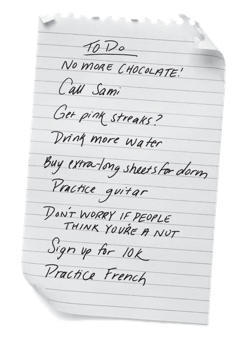 To Do
NO MORE CHOCOLATE!
Call Sami
Get pink streaks?
Drink more water
Buy extra-long sheets for dorm
Practice guitar
DON'T WORRY IF PEOPLE
THINK YOU'RE A NUT
Sign up for 10K
Practice French